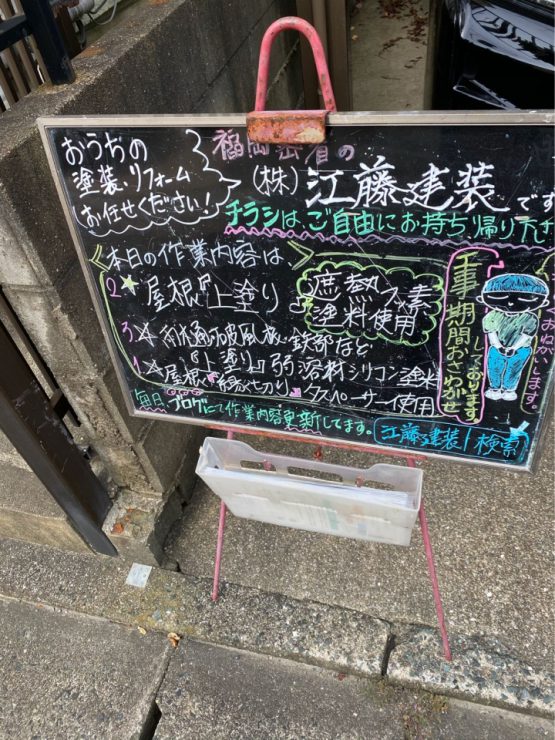 おうちの
塗装、リフォーム
お任せください！
福岡密着の
(株)江藤建装です
チラシはご自由にお持ち帰り下さ
本日の作業内容は、
2 ☆屋根『上塗り』
遮熱フッ素
塗料使用
3 ☆雨樋・破風板・鉄部など
『上塗り』弱溶剤シリコン塗料
1 ☆屋根『縁切り』タスペーサー使用
毎日、ブログにて作業内容更新してます。
江藤建装 検索
工事期間おさわがせ
しております。
おねがいします。